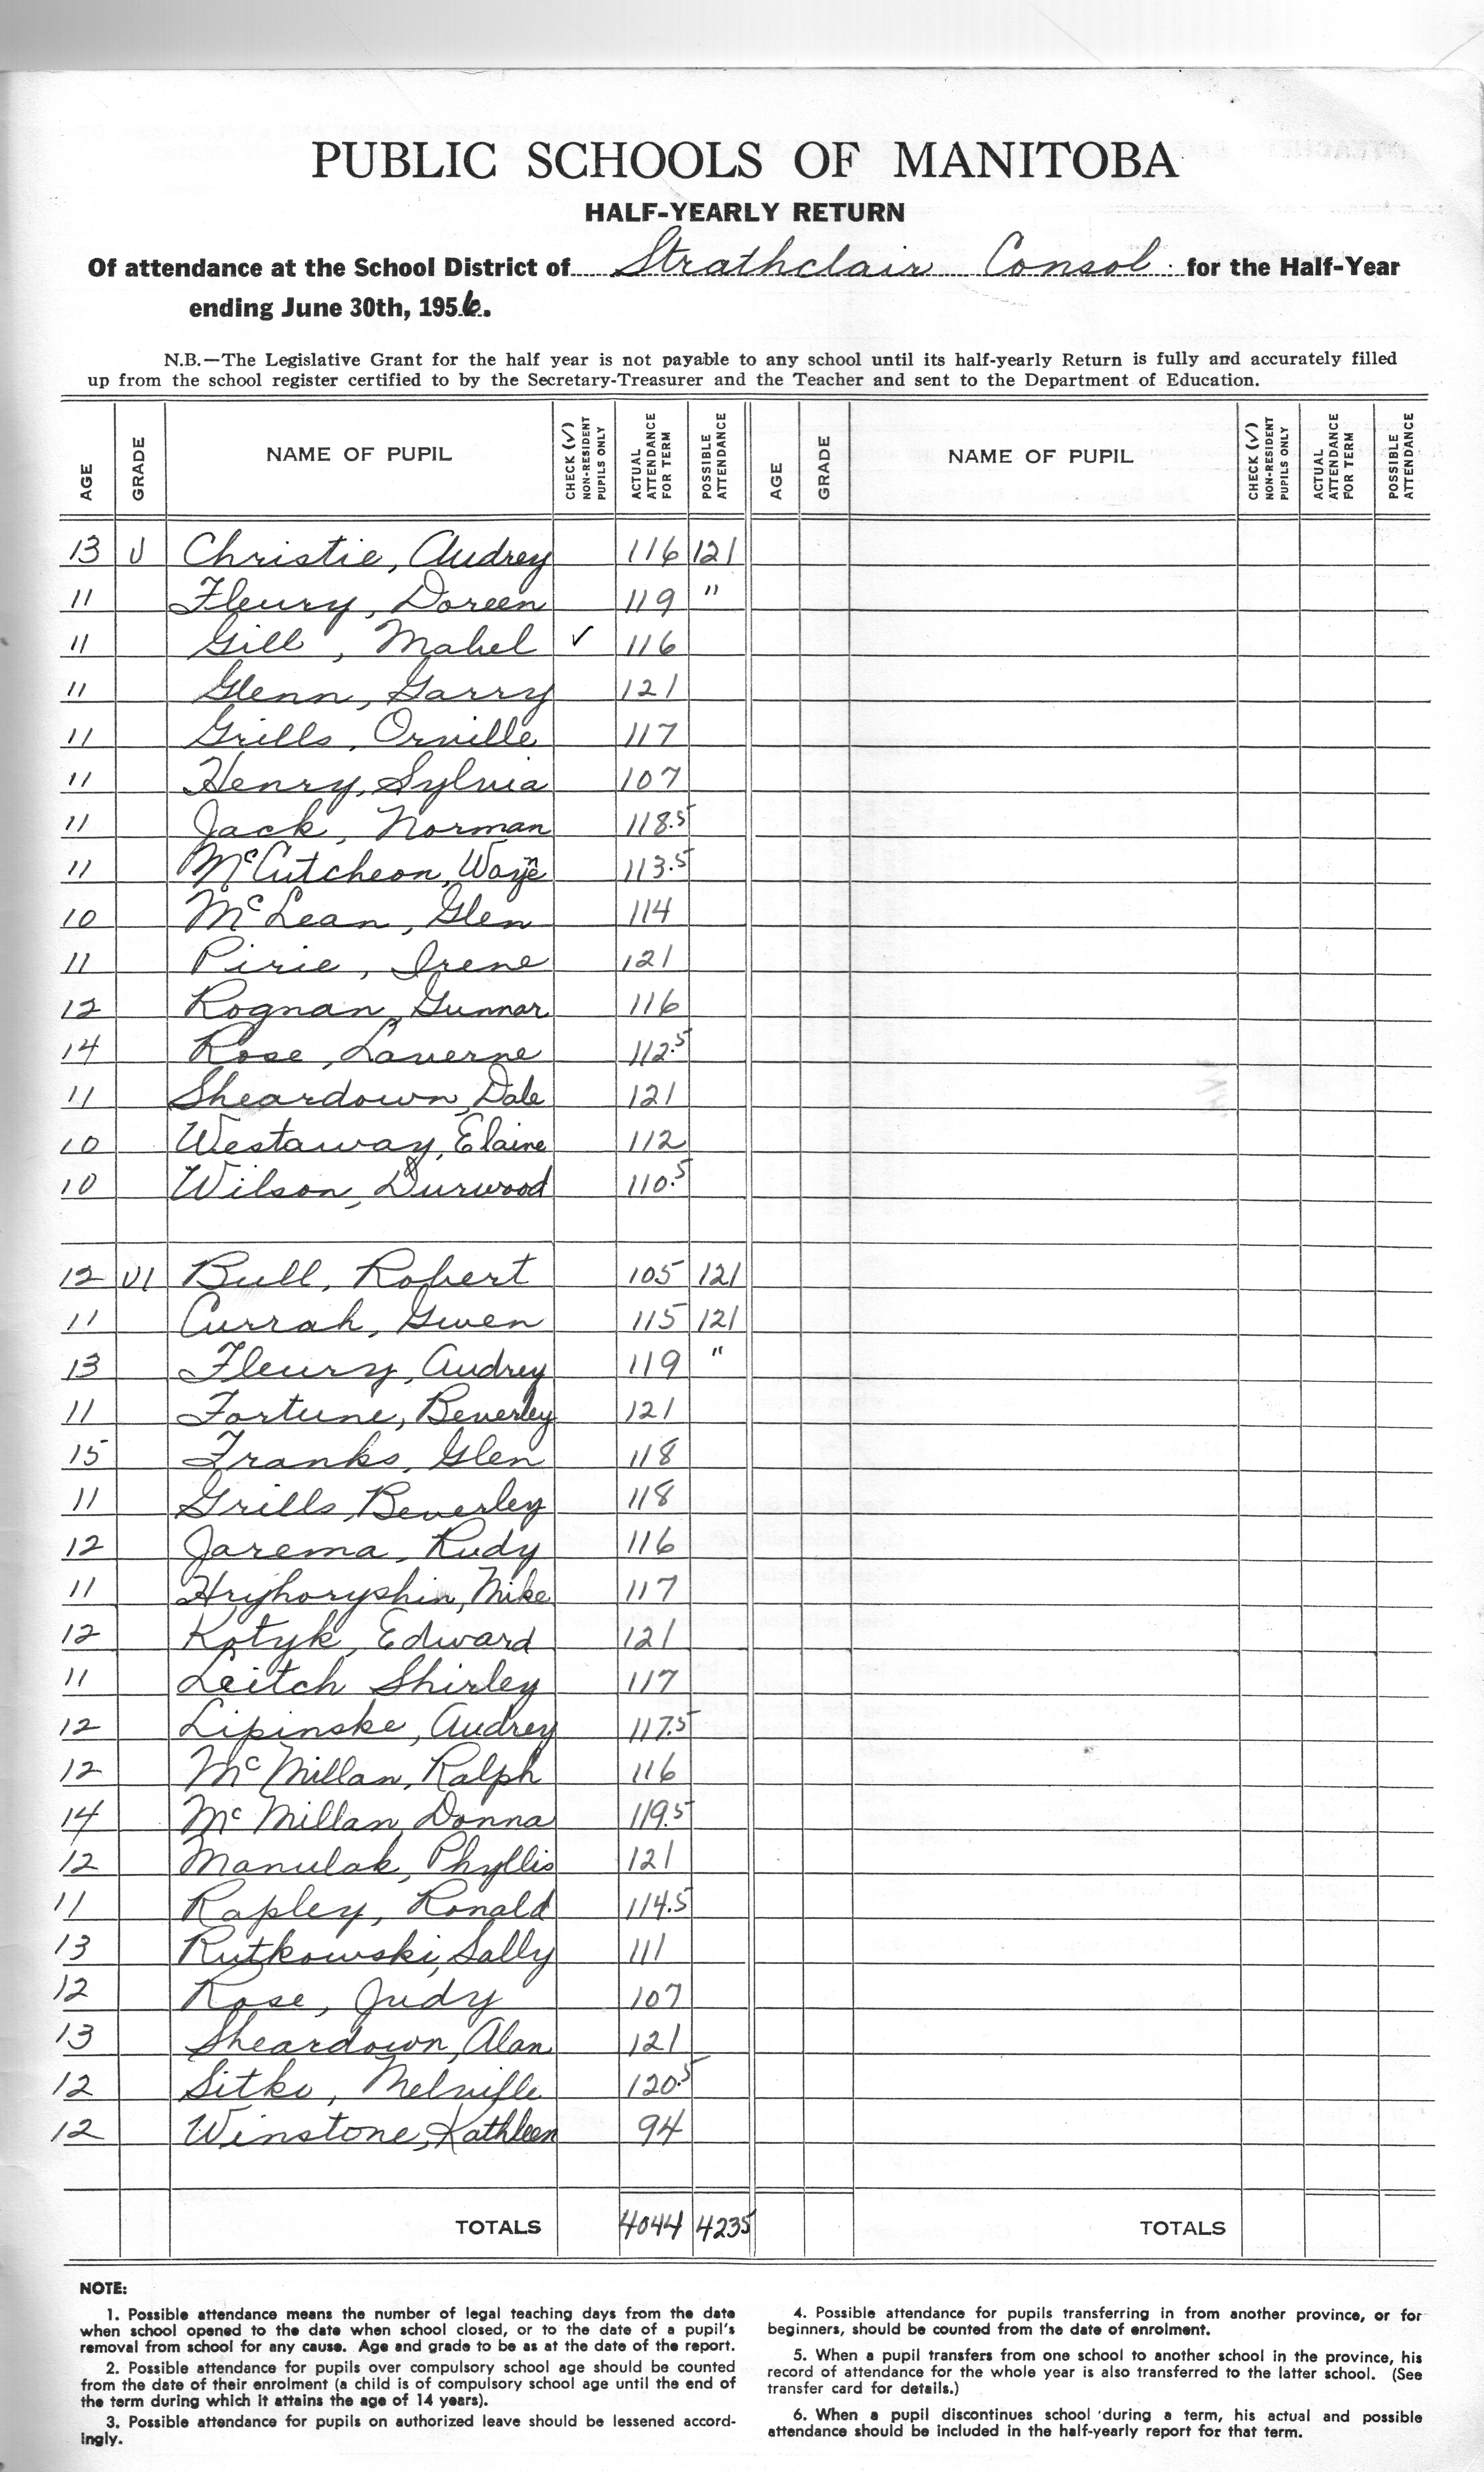 PUBLIC SCHOOLS OF MANITOBA
HALF-YEARLY RETURN
Of attendance at the School District of Strathclair Consol. for the Half-Year
ending June 30th, 1956.
N.B.—The Legislative Grant for the half year is not payable to any school until its half-yearly Return is fully and accurately filled
up from the school register certified to by the Secretary-Treasurer and the Teacher and sent to the Department of Education.
AGE GRADE NAME OF PUPIL CHECK (✓) NON-RESIDENT PUPILS ONLY ACTUAL ATTENDANCE FOR TERM POSSIBLE ATTENDANCE AGE GRADE NAME OF PUPIL CHECK (✓) NON-RESIDENT PUPILS ONLY ACTUAL ATTENDANCE FOR TERM POSSIBLE ATTENDANCE
13 V Christie, Audrey 116 121
11 Fleury, Doreen 119 "
11 Gill, Mabel ✓ 116
11 Glenn, Garry 121
11 Grills, Orville 117
11 Henry, Sylvia 107
11 Jack, Norman 118.5
11 McCutcheon, Wayne 113.5
10 McLean, Glen 114
11 Pirie, Irene 121
12 Rognan, Gunnar 116
14 Rose, Laverne 112.5
11 Sheardown, Dale 121
10 Westaway, Elaine 112
10 Wilson, Durwood 110.5
12 VI Bull, Robert 105 121
11 Currah, Gwen 115 121
13 Fleury, Audrey 119 "
11 Fortune, Beverley 121
15 Franks, Glen 118
11 Grills, Beverley 118
12 Jarema, Rudy 116
11 Hryhoryshin, Mike 117
12 Kotyk, Edward 121
11 Leitch Shirley 117
12 Lipinske, Audrey 117.5
12 McMillan, Ralph 116
14 McMillan, Donna 119.5
12 Manulak, Phyllis 121
11 Rapley, Ronald 114.5
13 Rutkowski, Sally 111
12 Rose, Judy 107
13 Sheardown, Alan 121
12 Sitko, Melville 120.5
12 Winstone, Kathleen 94
TOTALS 4044 4235 TOTALS
NOTE:
1. Possible attendance means the number of legal teaching days from the date
when school opened to the date when school closed, or to the date of a pupil's
removal from school for any cause. Age and grade to be as at the date of the report.
2. Possible attendance for pupils over compulsory school age should be counted
from the date of their enrolment (a child is of compulsory school age until the end of
the term during which it attains the age of 14 years).
3. Possible attendance for pupils on authorized leave should be lessened accord-
ingly.
4. Possible attendance for pupils transferring in from another province, or for
beginners, should be counted from the date of enrolment.
5. When a pupil transfers from one school to another school in the province, his
record of attendance for the whole year is also transferred to the latter school. (See
transfer card for details.)
6. When a pupil discontinues school during a term, his actual and possible
attendance should be included in the half-yearly report for that term.